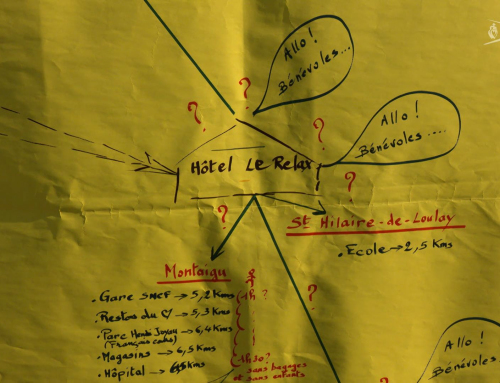 Allo !
Bénévoles....
?
?
Allo !
Bénévoles....
?
Hôtel Le Relax
?
?
St Hilaire-de-Loulay
• Ecole → 2,5 Kms
Montaigu
• Gare SNCF → 5,2 Kms
• Restos du ♡ → 5,3 Kms
• Parc Henri Joyau → 6,4 Kms
(Français cours)
• Magasins → 6,5 Kms
• Hôpital →
1h ?
1h30 ?
sans bagages
et sans enfants
?
?
Allo !
Bénévoles